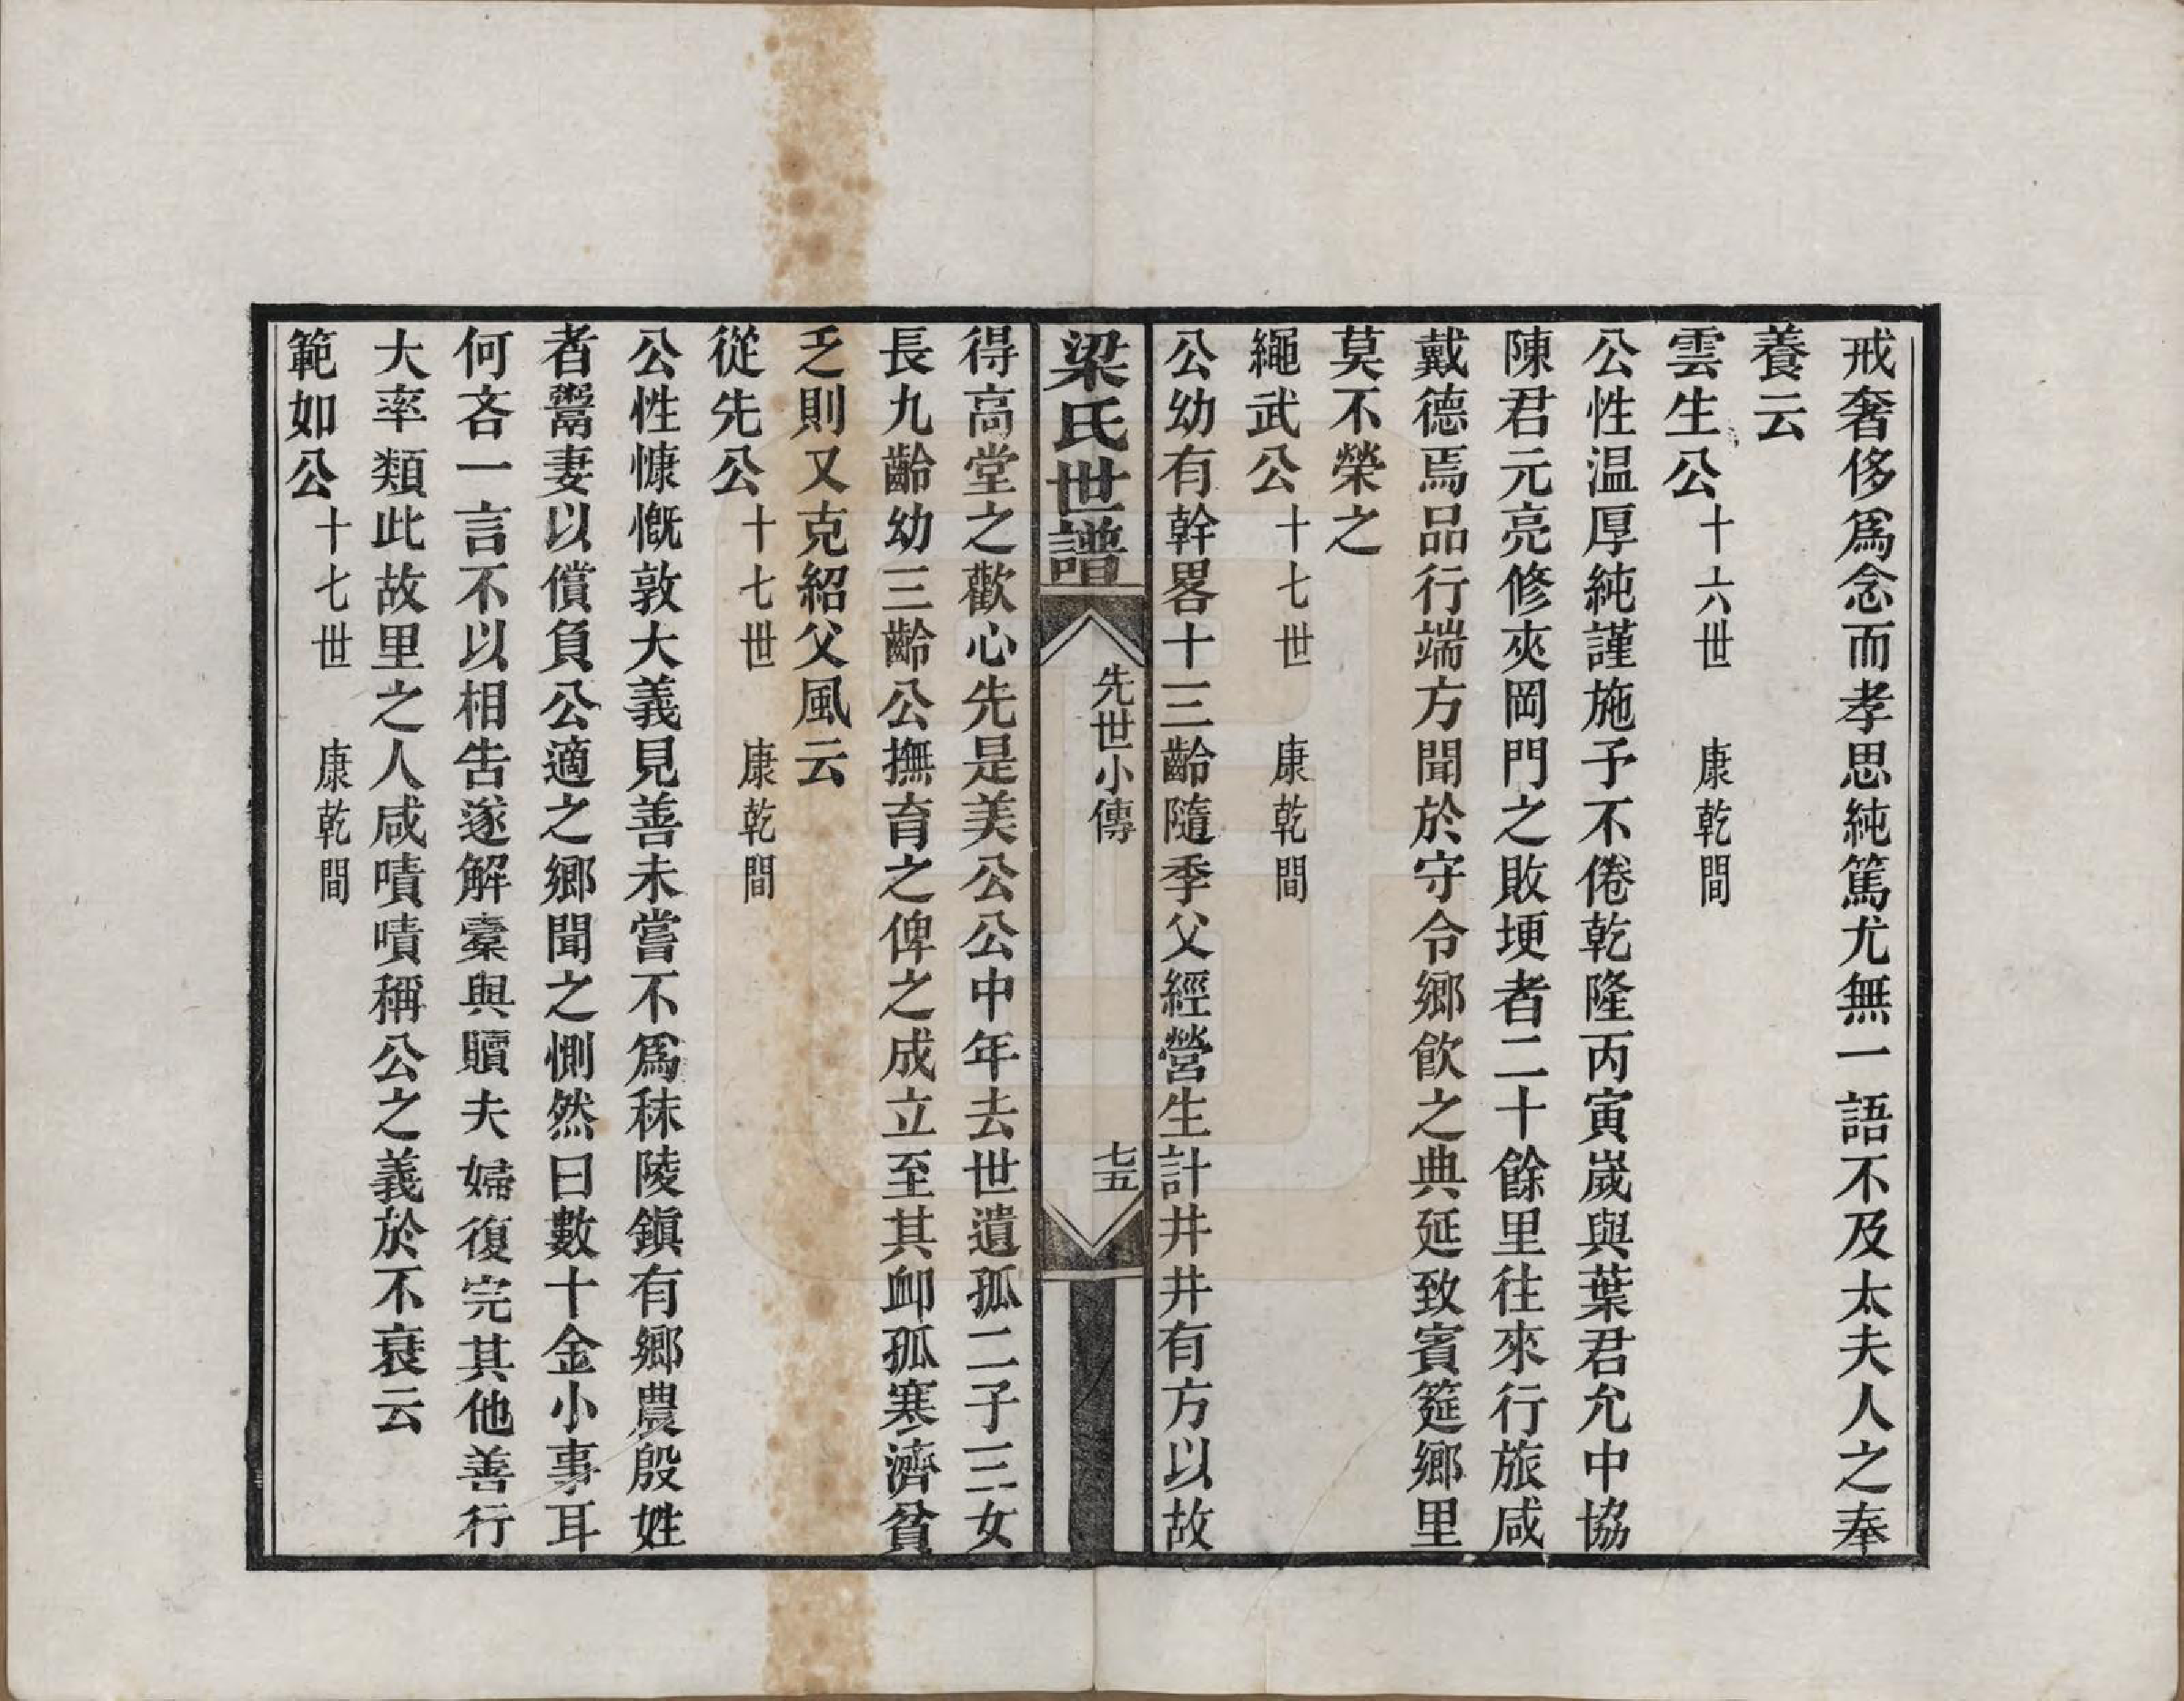 戒奢侈爲念而孝思純篤尤無一語不及太夫人之奉
養云
雲生公十六世 康乾間
公性温厚純謹施予不倦乾隆丙寅嵗與葉君允中協
陳君元亮修夾岡門之敗埂者二十餘里往來行旅咸
戴德焉品行端方聞於守令鄉飮之典延致賓筵鄉里
莫不榮之
繩武公十七世 康乾間
公幼有幹畧十三齡隨季父經營生計井井有方以故
梁氏世譜
先世小傳
七五
得高堂之歡心先是美公公中年去世遺孤二子三女
長九齡幼三齡公撫育之俾之成立至其卹孤寒濟貧
乏則又克紹父風云
從先公十七世 康乾間
公性慷慨敦大義見善未嘗不爲秣陵鎭有鄉農殷姓
者鬻妻以償負公適之鄉聞之惻然曰數十金小事耳
何吝一言不以相告遂解槖與贖夫婦復完其他善行
大率類此故里之人咸嘖嘖稱公之義於不衰云
範如公十七世 康乾間